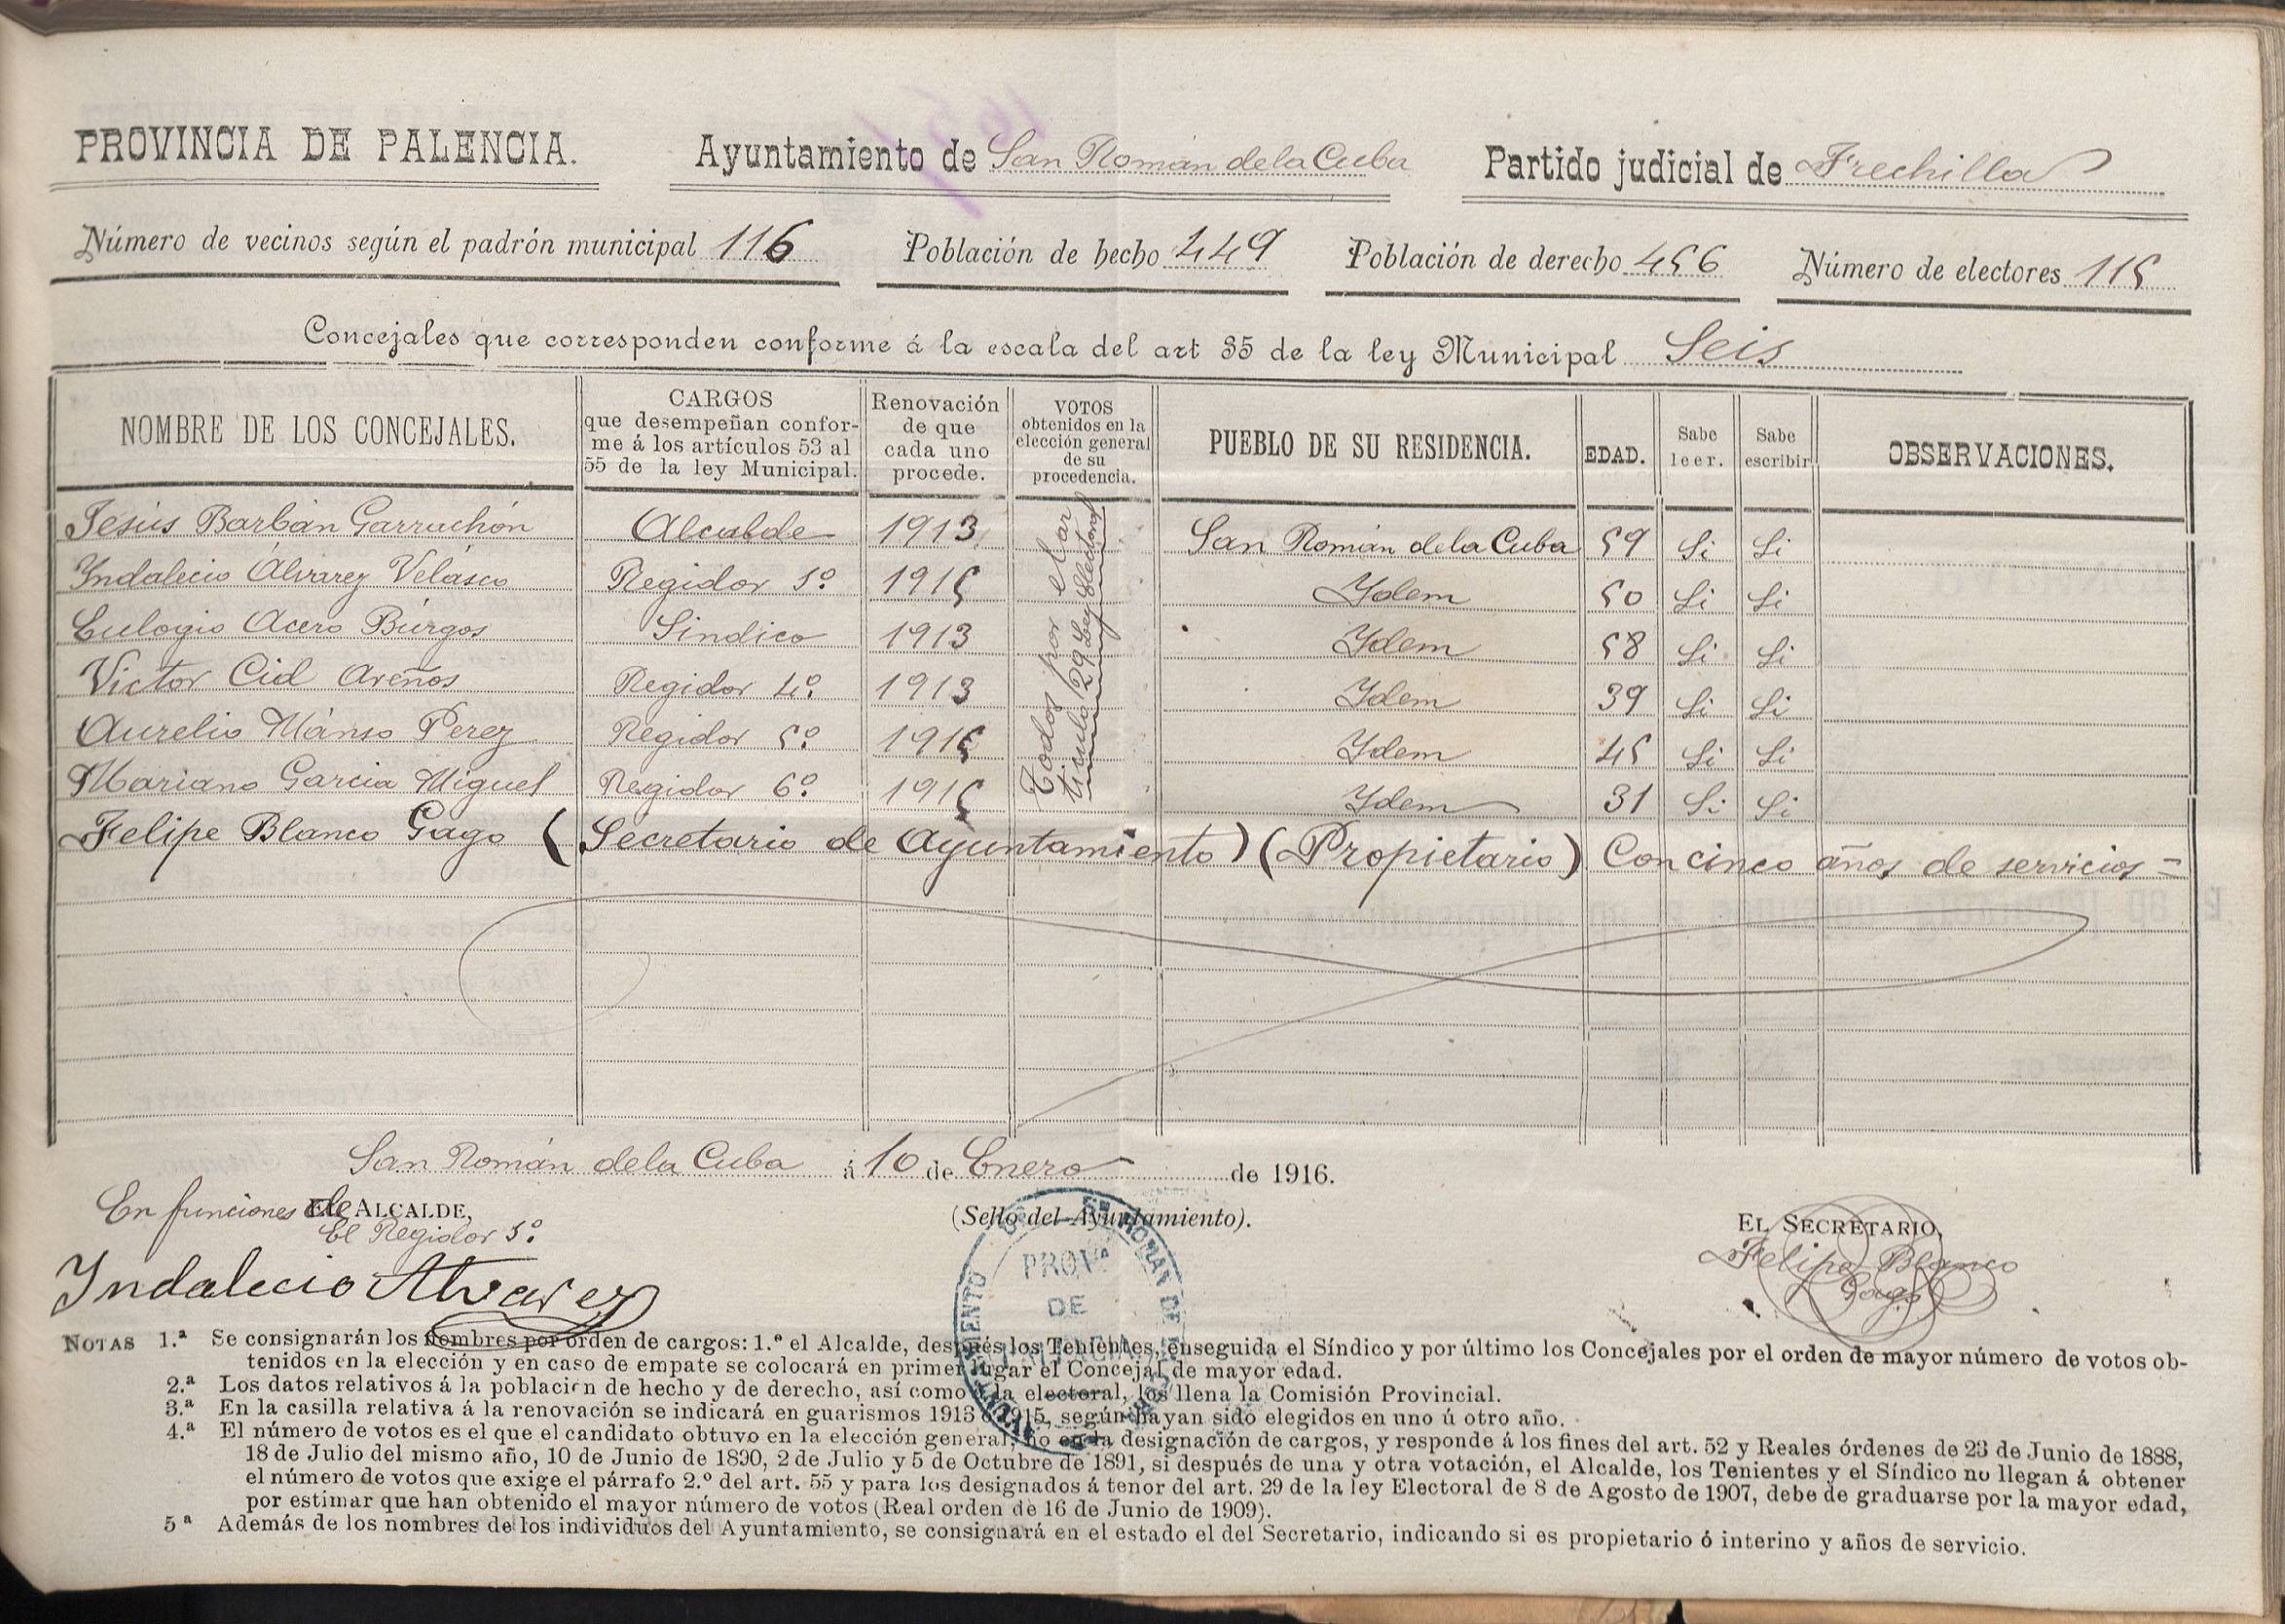 PROVINCIA DE PALENCIA. Ayuntamiento de San Román de la Cuba Partido judicial de Frechilla
Número de vecinos según el padrón municipal 116 Población de hecho 449 Población de derecho 456 Número de electores 115
Concejales que corresponden conforme á la escala del art 35 de la ley Municipal Seis
NOMBRE DE LOS CONCEJALES. CARGOS que desempeñan conforme á los artículos 53 al 55 de la ley Municipal. Renovación de que cada uno procede. VOTOS obtenidos en la elección general de su procedencia. PUEBLO DE SU RESIDENCIA. EDAD. Sabe leer. Sabe escribir OBSERVACIONES.
Jesús Barbán Garrachón Alcalde 1913 San Román de la Cuba 59 Si Si
Yndalecio Álvarez Velásco Regidor 1º 1915 Ydem 50 Si Si
Eulogio Acero Búrgos Sindico 1913 Ydem 58 Si Si
Victor Cid Areños Regidor 4º 1913 Ydem 39 Si Si
Aurelio Mánso Perez Regidor 5º 1915 Ydem 45 Si Si
Mariano Garcia Miguel Regidor 6º 1915 Ydem 31 Si Si
Todos por el ar
tículo 29 Ley Electoral
Felipe Blanco Gago (Secretario de Ayuntamiento) (Propietario) Con cinco años de servicios =
San Román de la Cuba á 10 de Enero de 1916.
En funciones de EL ALCALDE, (Sello del Ayuntamiento). EL SECRETARIO,
El Regidor 1º
Yndalecio Alvarez
Felipe Blanco
Gago
PROVª
DE
NOTAS 1.ª Se consignarán los nombres por orden de cargos: 1.º el Alcalde, después los Tenientes, enseguida el Síndico y por último los Concejales por el orden de mayor número de votos ob-
tenidos en la elección y en caso de empate se colocará en primer lugar el Concejal de mayor edad.
2.ª Los datos relativos á la población de hecho y de derecho, así como á la electoral, los llena la Comisión Provincial.
3.ª En la casilla relativa á la renovación se indicará en guarismos 1913 ó 1915, según hayan sido elegidos en uno ú otro año.
4.ª El número de votos es el que el candidato obtuvo en la elección general, no en la designación de cargos, y responde á los fines del art. 52 y Reales órdenes de 23 de Junio de 1888,
18 de Julio del mismo año, 10 de Junio de 1890, 2 de Julio y 5 de Octubre de 1891, si después de una y otra votación, el Alcalde, los Tenientes y el Síndico no llegan á obtener
el número de votos que exige el párrafo 2.º del art. 55 y para los designados á tenor del art. 29 de la ley Electoral de 8 de Agosto de 1907, debe de graduarse por la mayor edad,
por estimar que han obtenido el mayor número de votos (Real orden de 16 de Junio de 1909).
5ª Además de los nombres de los individuos del Ayuntamiento, se consignará en el estado el del Secretario, indicando si es propietario ó interino y años de servicio.